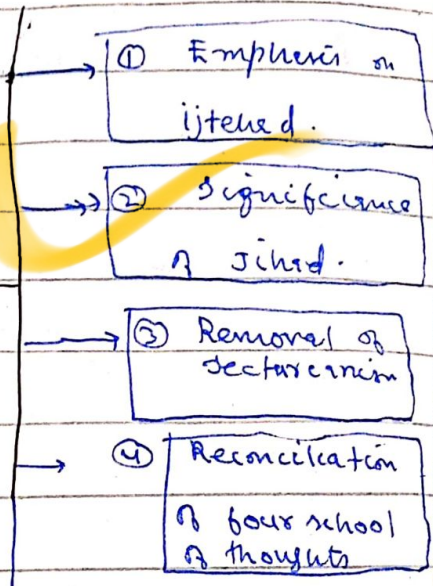 ① Emphesis on
ijtehad.
② Significiance
of Jihad.
③ Removal of
Sectarianism
④ Reconciliation
of four school
of thoughts